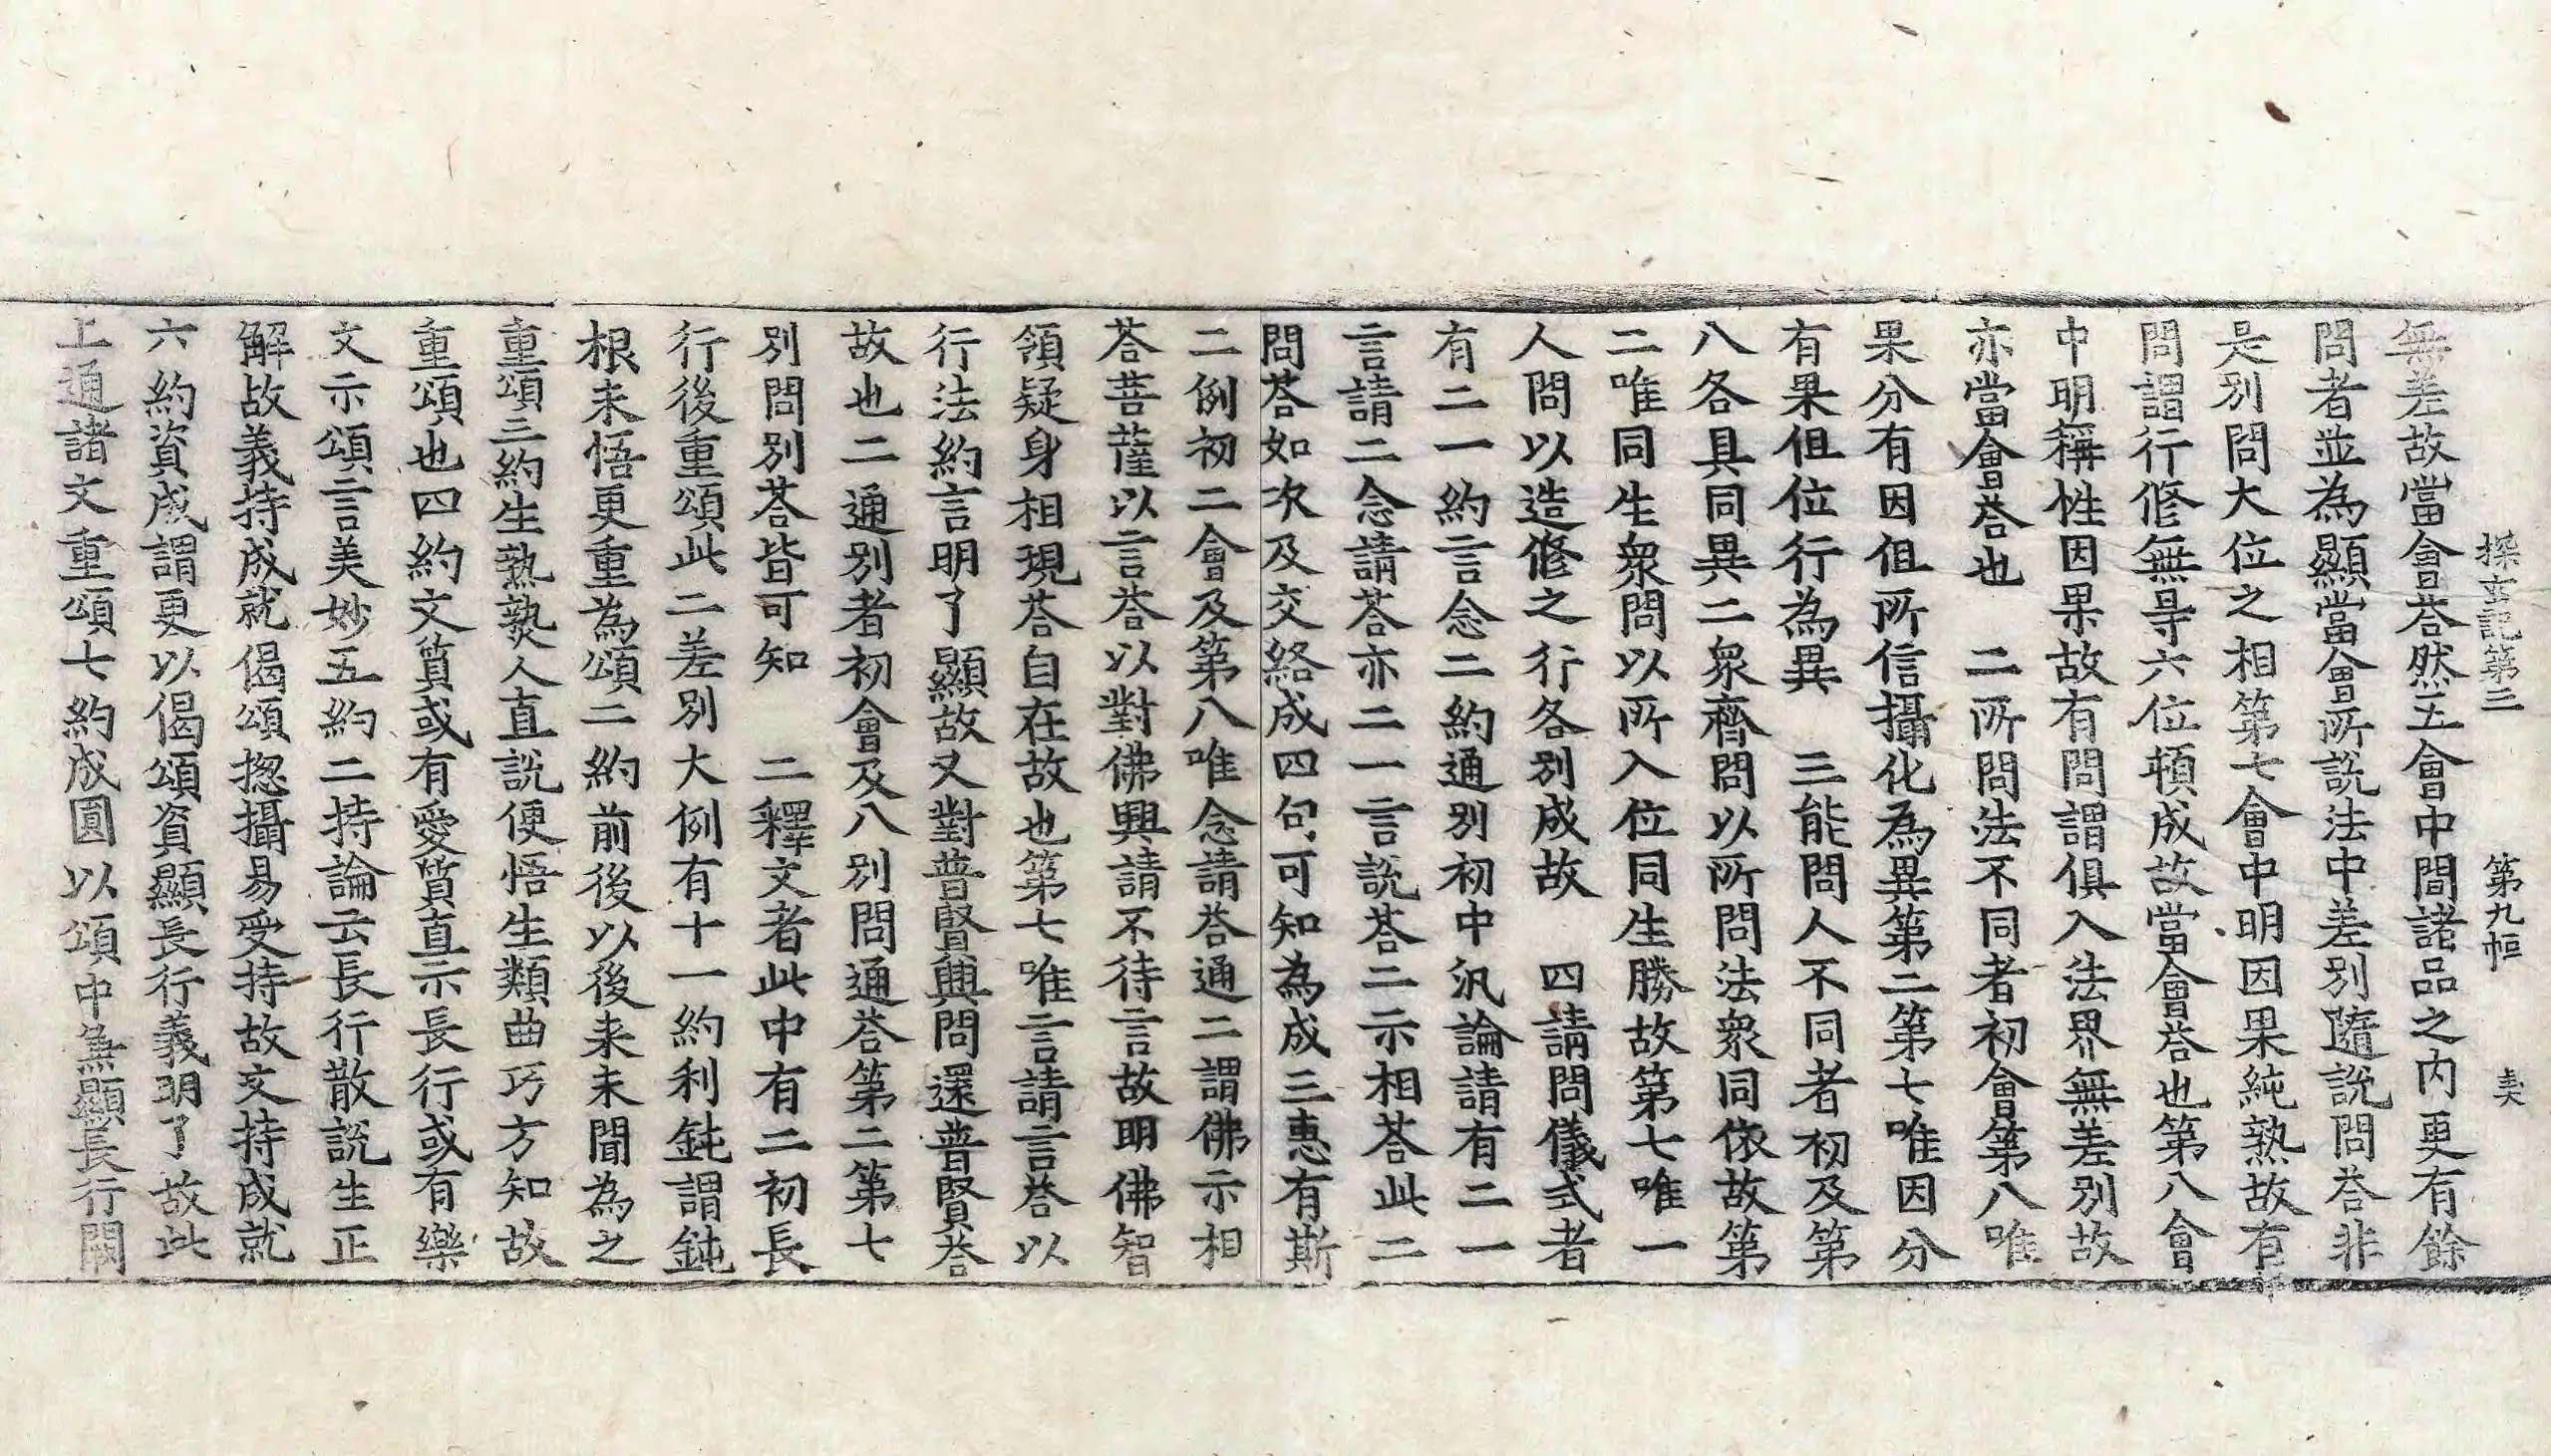 探玄記第三　第九帳　夫
無差故當會荅然五會中間諸品之内更有餘
問者並為顯當會所說法中差別隨說問荅非
是別問大位之相第七會中明因果純熟故有
問謂行修無㝵六位頓成故當會荅也第八會
中明稱性因果故有問謂俱入法界無差別故
亦當會荅也　二所問法不同者初會第八唯
果分有因但所信攝化為異第二第七唯因分
有果但位行為異　三能問人不同者初及第
八各具同異二衆齊問以所問法衆同依故第
二唯同生衆問以所入位同生勝故第七唯一
人問以造修之行各別成故　四請問儀式者
有二一約言念二約通別初中汎論請有二一
言請二念請荅亦二一言說荅二示相荅此二
問荅如次及交絡成四句可知為成三惠有斯
二例初二會及第八唯念請荅通二謂佛示相
荅菩薩以言荅以對佛興請不待言故明佛智
領疑身相現荅自在故也第七唯言請言荅以
行法約言明了顯故又對普賢興問還普賢荅
故也二通別者初會及八別問通荅第二第七
別問別荅皆可知　二釋文者此中有二初長
行後重頌此二差別大例有十一約利鈍謂鈍
根未悟更重為頌二約前後以後来未聞為之
重頌三約生熟熟人直說便悟生類曲巧方知故
重頌也四約文質或有愛質直示長行或有樂
文示頌言美妙五約二持論云長行散說生正
解故義持成就偈頌揔攝易受持故文持成就
六約資成謂更以偈頌資顯長行義明了故此
上通諸文重頌七約成圓以頌中無顯長行闕